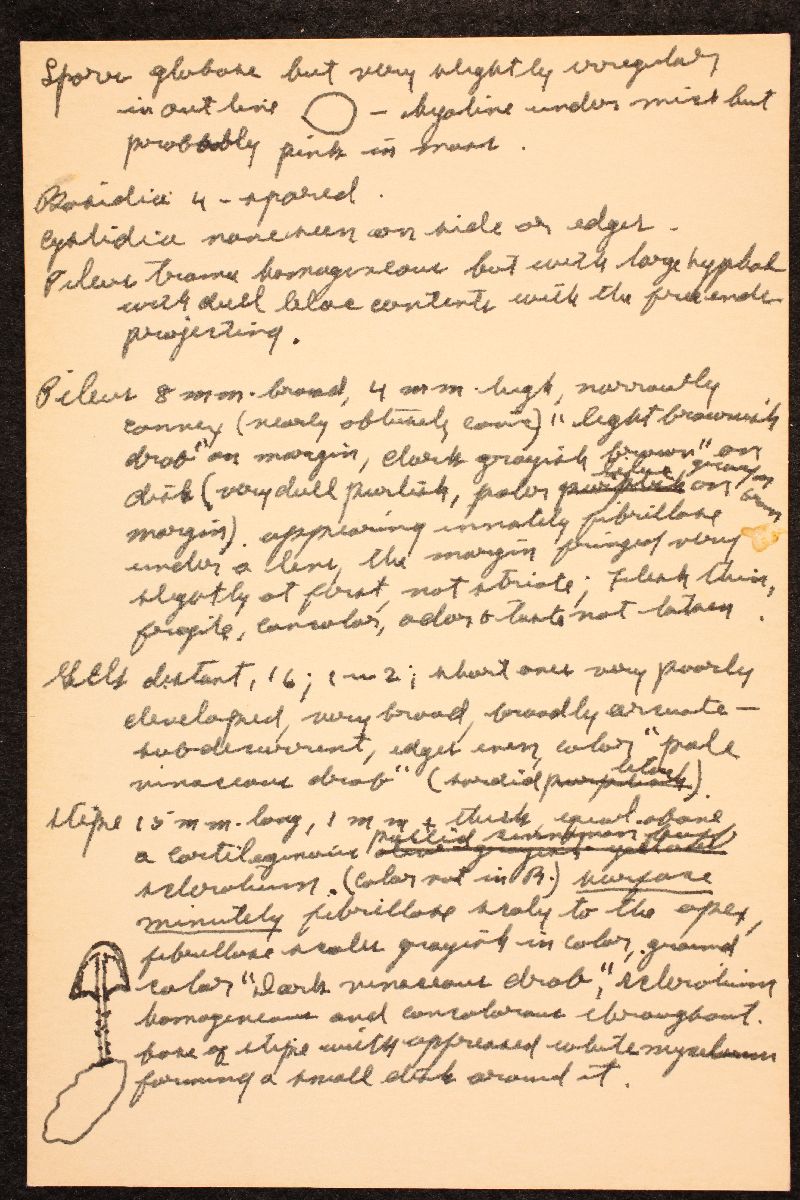 Spores globose but very slightly irregular
in outline — hyaline under micr but
probbably pink in mass .
Basidia 4 - spored .
Cystidia none seen on side or edges .
Pileus trama homogeneous but with large hyphae
with dull blue contents with the free ends
projecting.
Pileus 8 mm. broad, 4 mm high, narrowly
convex (nearly obtusely conic) "light brownish
drab" on margin, dark grayish brown" on
disk (very dull purlish, paler purplish lilac gray on
margin). appearing innately fibrillose
under a lens, the margin fringed very
slightly at first, not striate; Flesh thin,
fragile, concolor, odor & taste not taken .
Gills distant, 16; 1-2; short ones very poorly
developed, very broad, broadly arcuate —
subdecurrent, edges even, color "pale
vinaceous drab" (sordid purplish lilac).
Stipe 15 mm. long, 1 mm + thick, equal above
a cartilagenous pallid cinnamon buff olive grayish yellowish
sclerotium. (color not in R.) surface
minutely fibrillose scaly to the apex,
fibrillose scales grayish in color, ground
color "Dark vinaceous drab", sclerotium
homogeneous and concolorous throughout.
base of stipe with appressed white mycelium
forming a small disk around it .